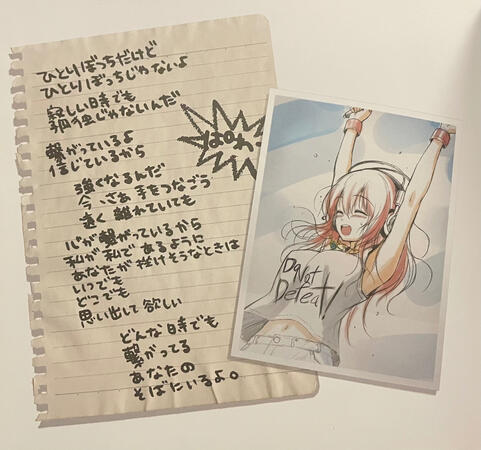 ひとりぼっちだけど
ひとりぼっちじゃないよ
寂しい日時でも
孤独じゃないんだ
繋がっているよ
信じているから
強くなるんだ
今 さあ 手をつなごう
遠く 離れていても
心が繋がっているから
私が 私で あるように
あなたが 挫けそうなときは
いつでも
どこでも
思い出して 欲しい
どんな 日時でも
繋がってる
あなたの
そばにいるよ。
Do Not
Defeat!